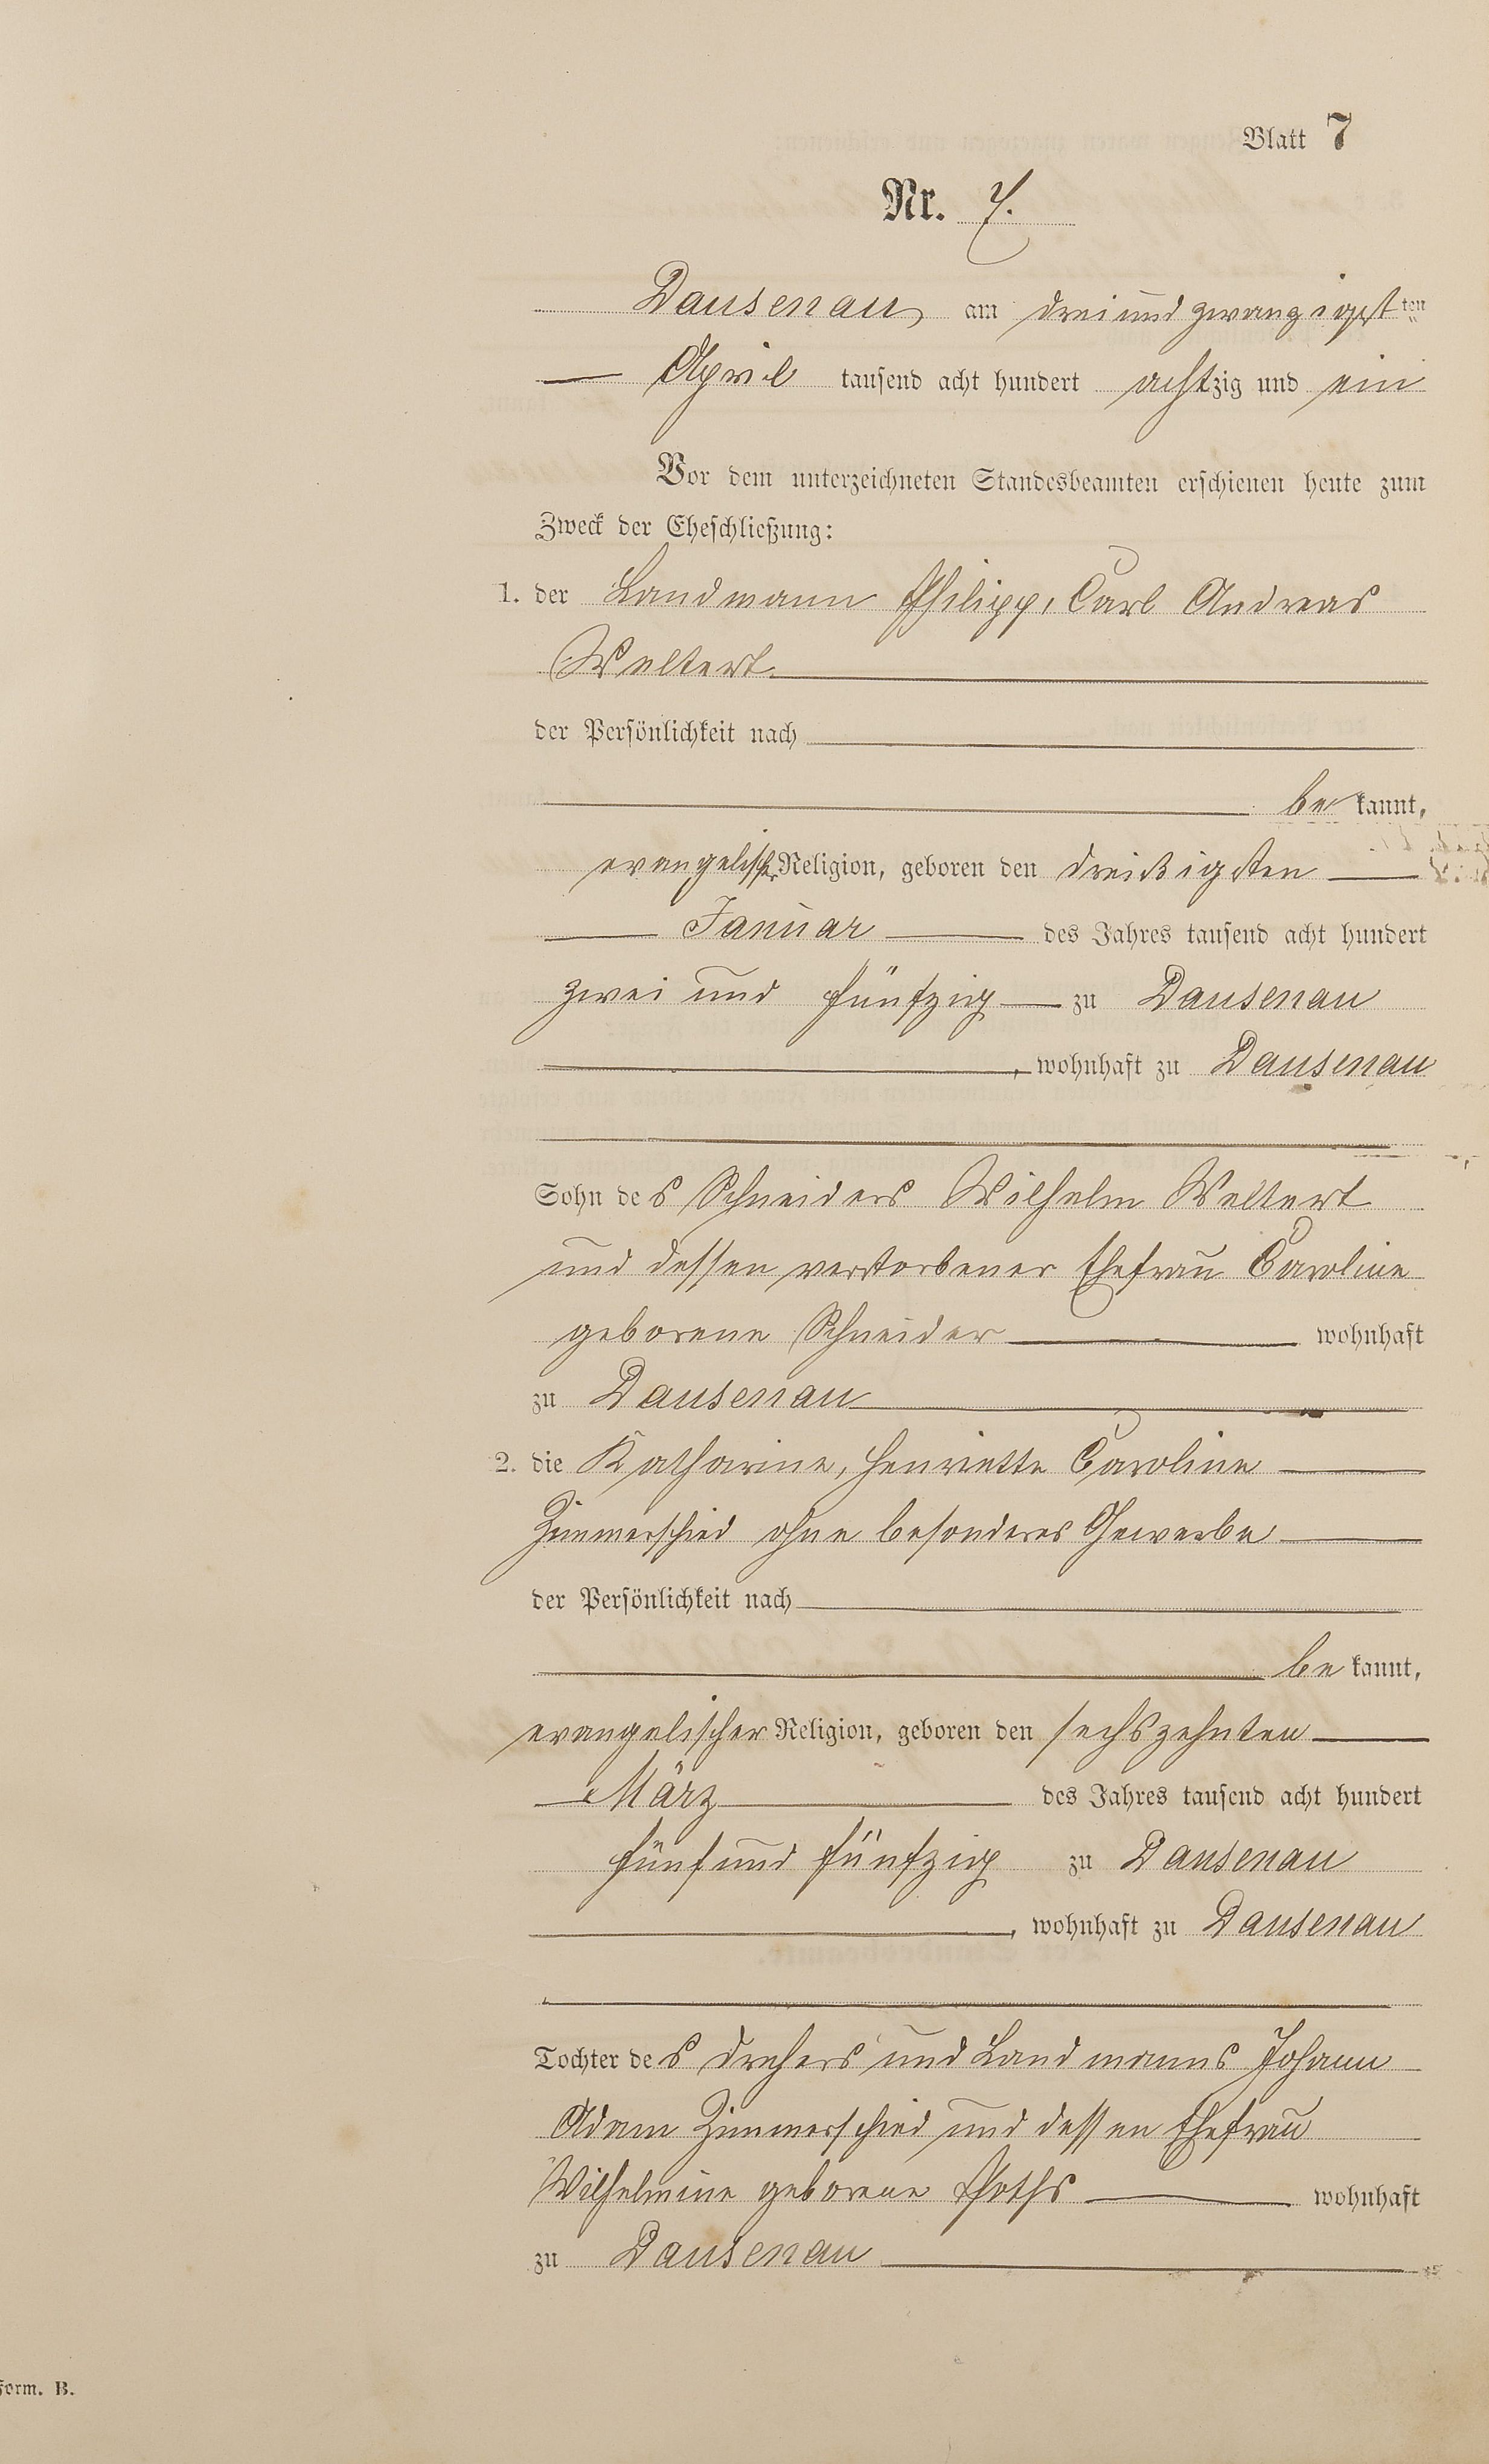 Blatt 7
Nr. 7.
Dausenau am dreiundzwanzigst ten
April tausend acht hundert achtzig und ein
Vor dem unterzeichneten Standesbeamten erschienen heute zum
Zweck der Eheschließung:
1. der Landmann Philipp, Carl Andreas
Weltert.
der Persönlichkeit nach
be kannt,
evangelischer Religion, geboren den dreißigsten
Januar des Jahres tausend acht hundert
zwei und fünfzig zu Dausenau
, wohnhaft zu Dausenau
Sohn des Schneiders Wilhelm Weltert
und dessen verstorbener Ehefrau Caroline
geborene Schneider wohnhaft
zu Dausenau
2. die Katharine, Henriette Caroline
Zimmerschied ohne besonderes Gewerbe
der Persönlichkeit nach
be kannt,
evangelischer Religion, geboren den sechszehnten
März des Jahres tausend acht hundert
fünf und fünfzig zu Dausenau
, wohnhaft zu Dausenau
Tochter des Drehers und Landmanns Johann
Adam Zimmerschied und dessen Ehefrau
Wilhelmine geborene wohnhaft
zu Dausenau
Form. B.